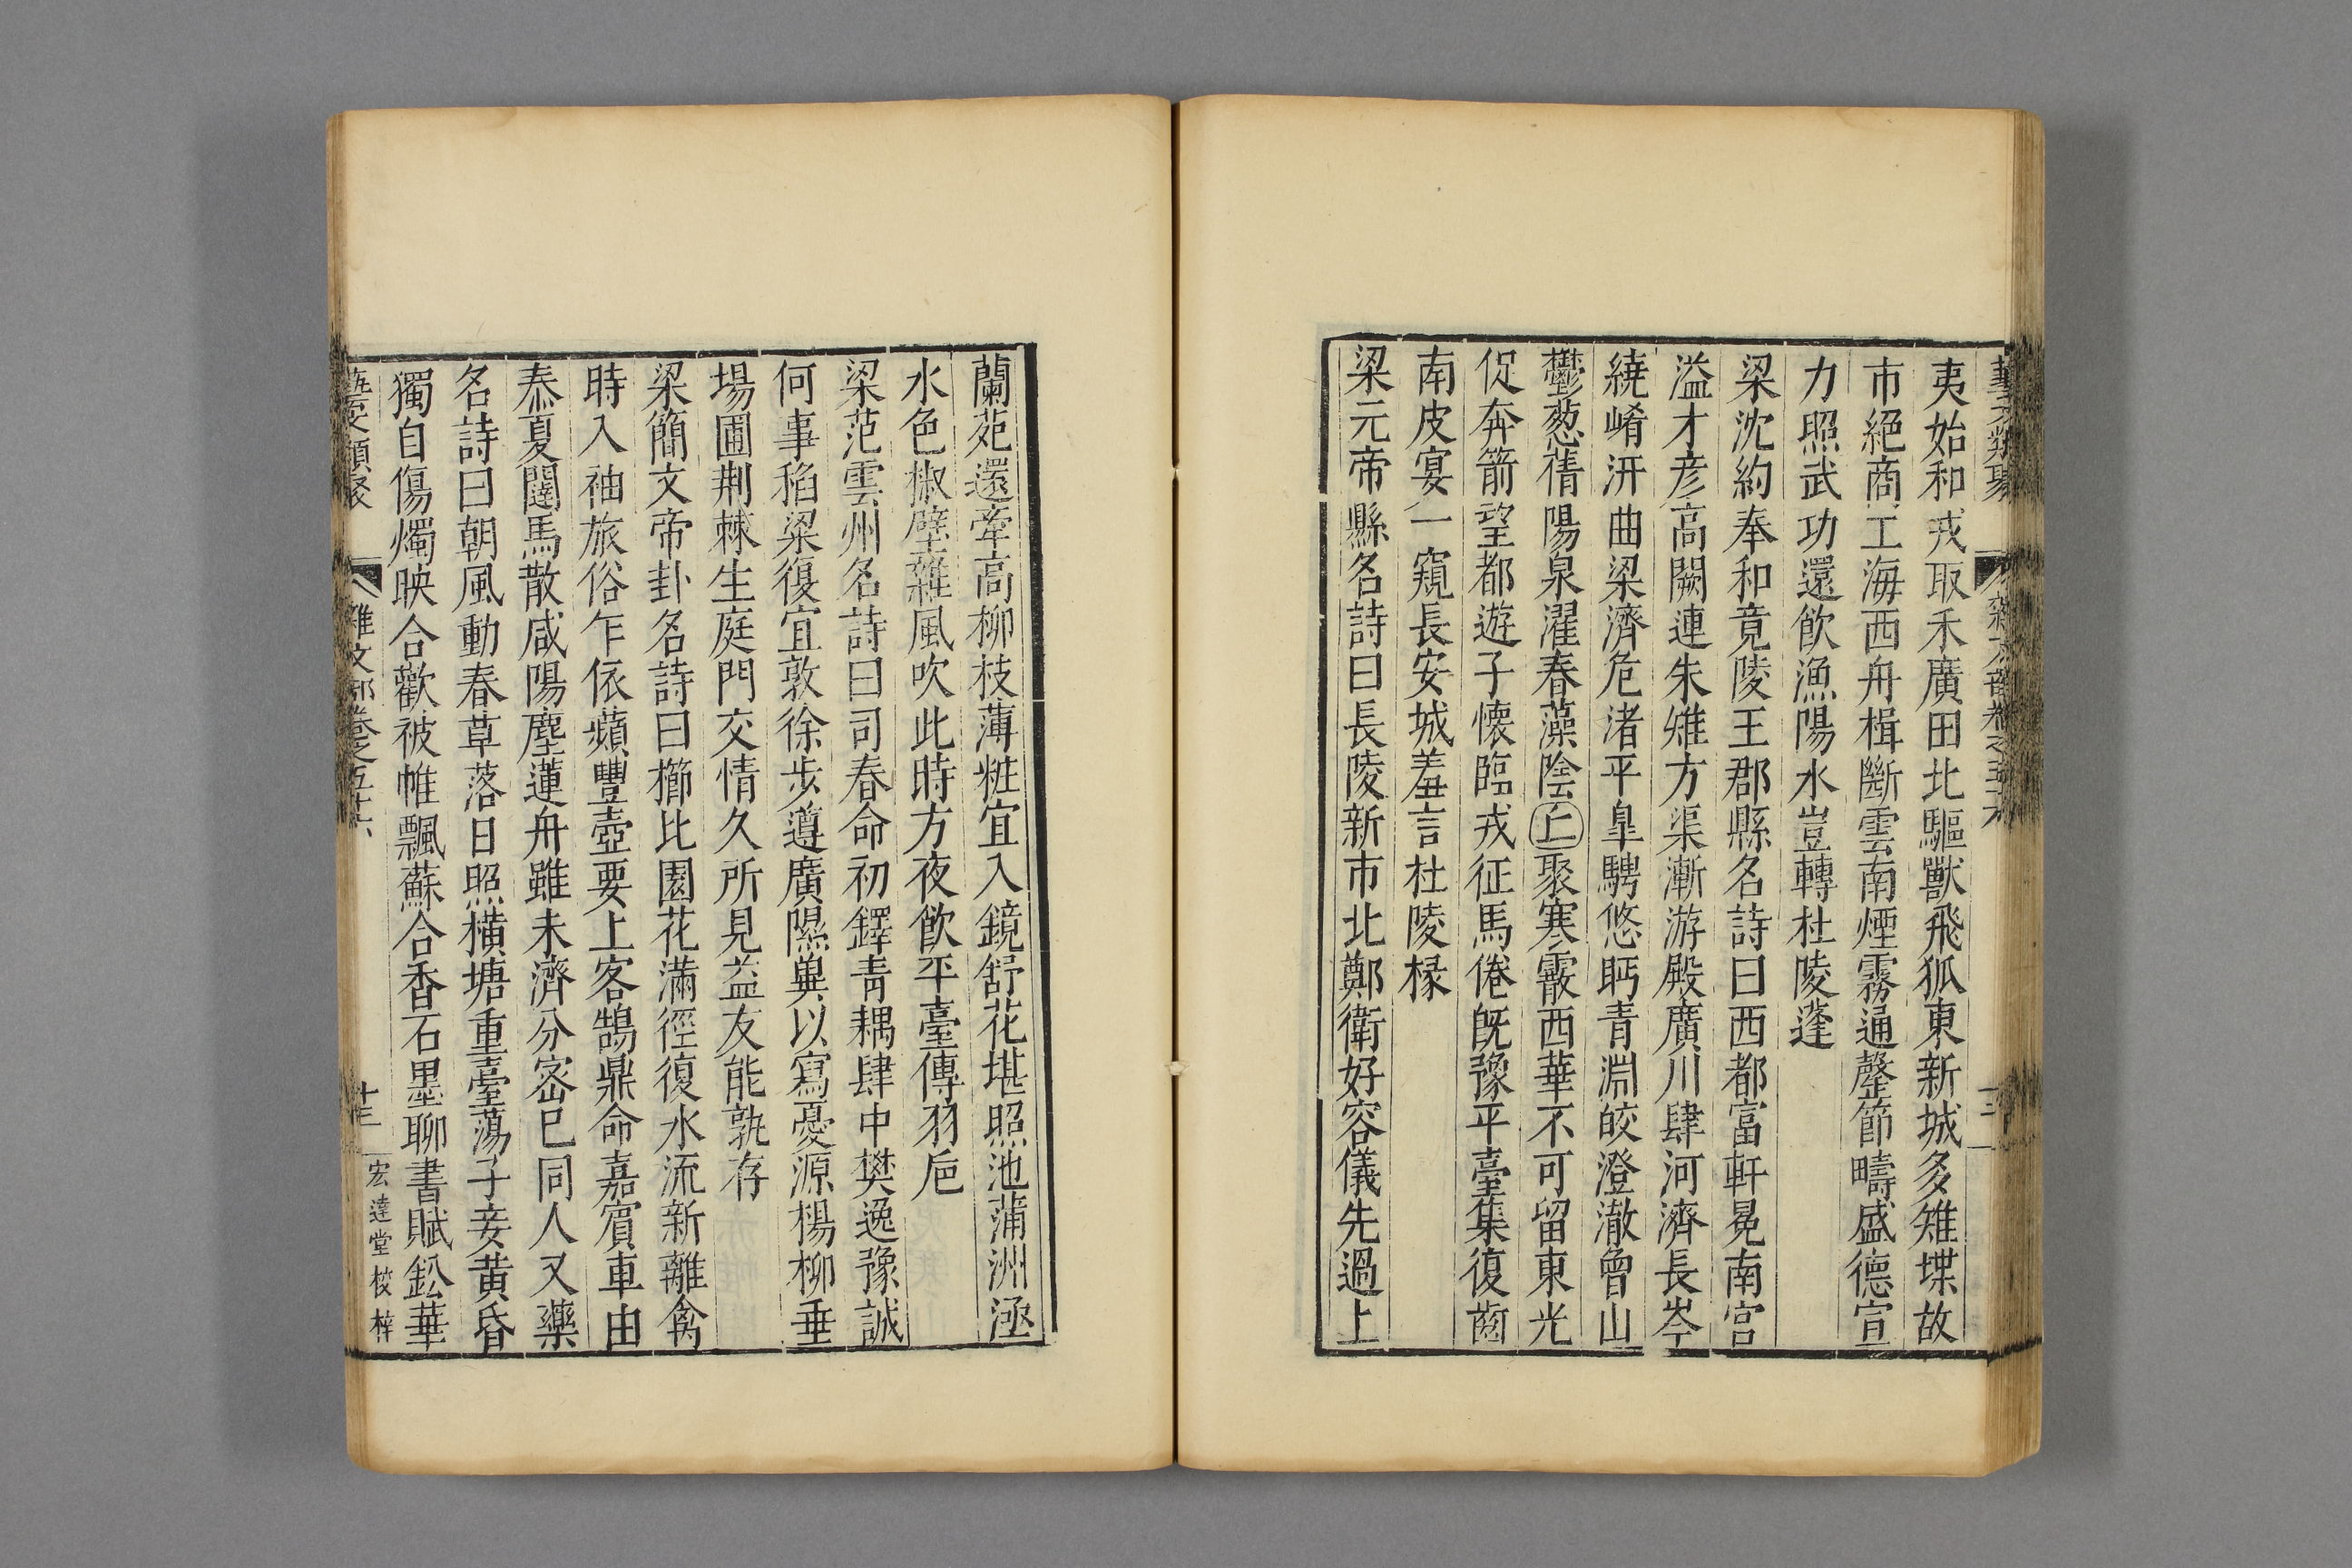 夷始和戎取禾廣田北驅獸飛狐東新城多雉堞故
市絕商工海西舟楫斷雲南煙霧通罄節疇盛德宣
力照武功還飲漁陽水豈轉杜陵蓬
梁沈約奉和竟陵王郡縣名詩曰西都富軒冕南宮
溢才彦高闕連朱雉方渠漸游殿廣川肆河濟長岑
繞崤汧曲梁濟危渚平臯騁悠眄青淵皎澄澈曾山
鬱葱蒨陽泉濯春藻陰丘聚寒霰西華不可留東光
促奔箭望都遊子懷臨戎征馬倦既豫平臺集復齒
南皮宴一窺長安城羞言杜陵椽
梁元帝縣名詩曰長陵新市北鄭衛好容儀先過上
蘭苑還牽高柳枝薄粧宜入鏡舒花堪照池蒲洲涵
水色椒壁雜風吹此時方夜飲平臺傳羽巵
梁范雲州名詩曰司春命初鐸青耦肆中樊逸豫誠
何事稻粱復宜敦徐步遵廣隰兾以寫憂源楊柳垂
場圃荆棘生庭門交情久所見益友能孰存
梁簡文帝卦名詩曰櫛比園花滿徑復水流新離禽
時入袖旅俗乍依蘋豐壺要上客鵠鼎命嘉賓車由
泰夏闥馬散咸陽塵蓮舟雖未濟分密已同人又藥
名詩曰朝風動春草落日照橫塘重臺蕩子妾黄昏
獨自傷燭映合歡被帷飄蘇合香石墨聊書賦鈆華
藝文類聚 雜文部卷之五十六 十三 宏達堂校梓